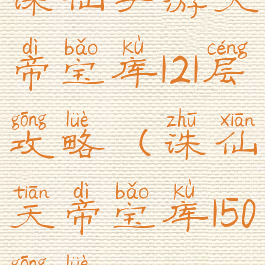 dì bǎo kù céng
帝宝库121层
gōng lüè zhū xiān
攻略（诛仙
tiān dì bǎo kù
天帝宝库150
gōng lüè